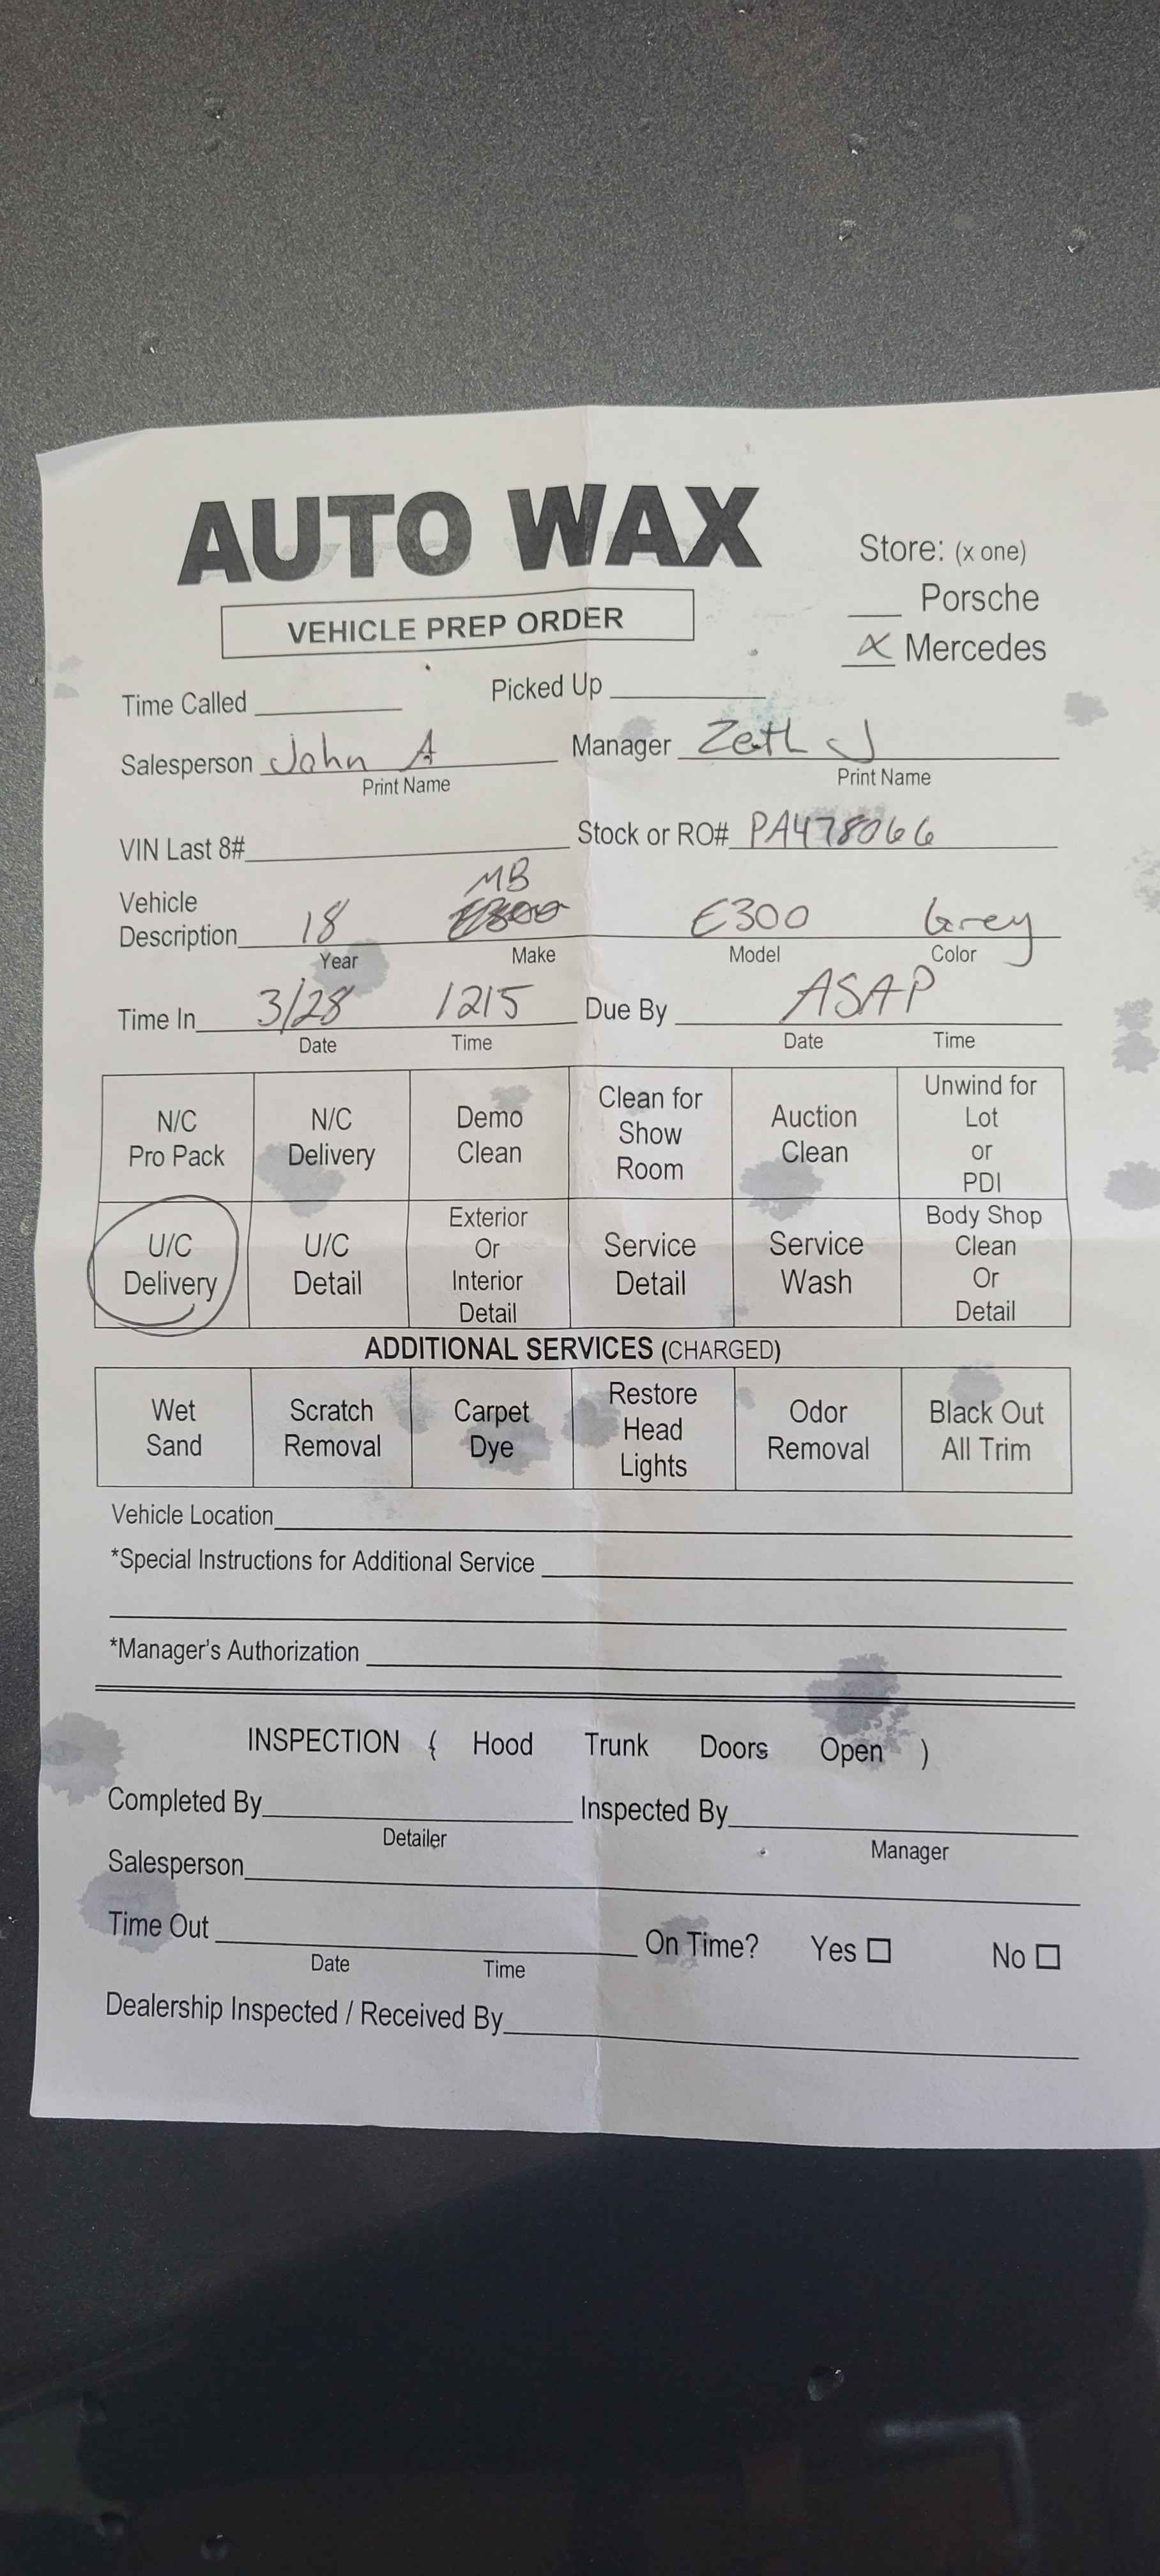 AUTO WAX
VEHICLE PREP ORDER
Store: (x one)
___ Porsche
X Mercedes
Time Called ___ Picked Up ___
Salesperson John A Manager Zeth J
Print Name Print Name
VIN Last 8# ___ Stock or RO# PA478066
MB
Vehicle
Description 18 E300 E300 Grey
Year Make Model Color
Time In 3/28 1215 Due By ASAP
Date Time Date Time
N/C Pro Pack
N/C Delivery
Demo Clean
Clean for Show Room
Auction Clean
Unwind for Lot or PDI
U/C Delivery
U/C Detail
Exterior Or Interior Detail
Service Detail
Service Wash
Body Shop Clean Or Detail
ADDITIONAL SERVICES (CHARGED)
Wet Sand
Scratch Removal
Carpet Dye
Restore Head Lights
Odor Removal
Black Out All Trim
Vehicle Location
*Special Instructions for Additional Service
*Manager's Authorization
INSPECTION ( Hood Trunk Doors Open )
Completed By ___ Inspected By ___
Detailer Manager
Salesperson
Time Out ___ On Time? Yes ☐ No ☐
Date Time
Dealership Inspected / Received By